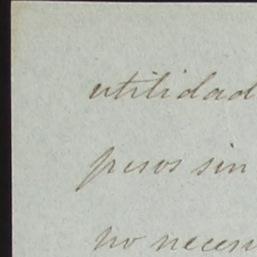 utilidad
pesos sin
no neces